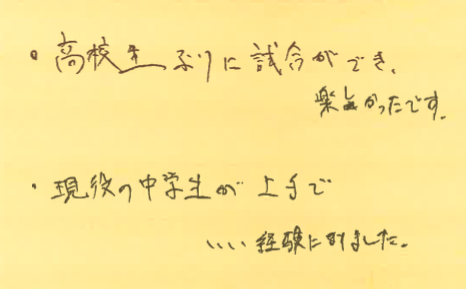 ・高校生ぶりに試合ができ、
楽しかったです。
・現役の中学生が上手で
いい経験になりました。